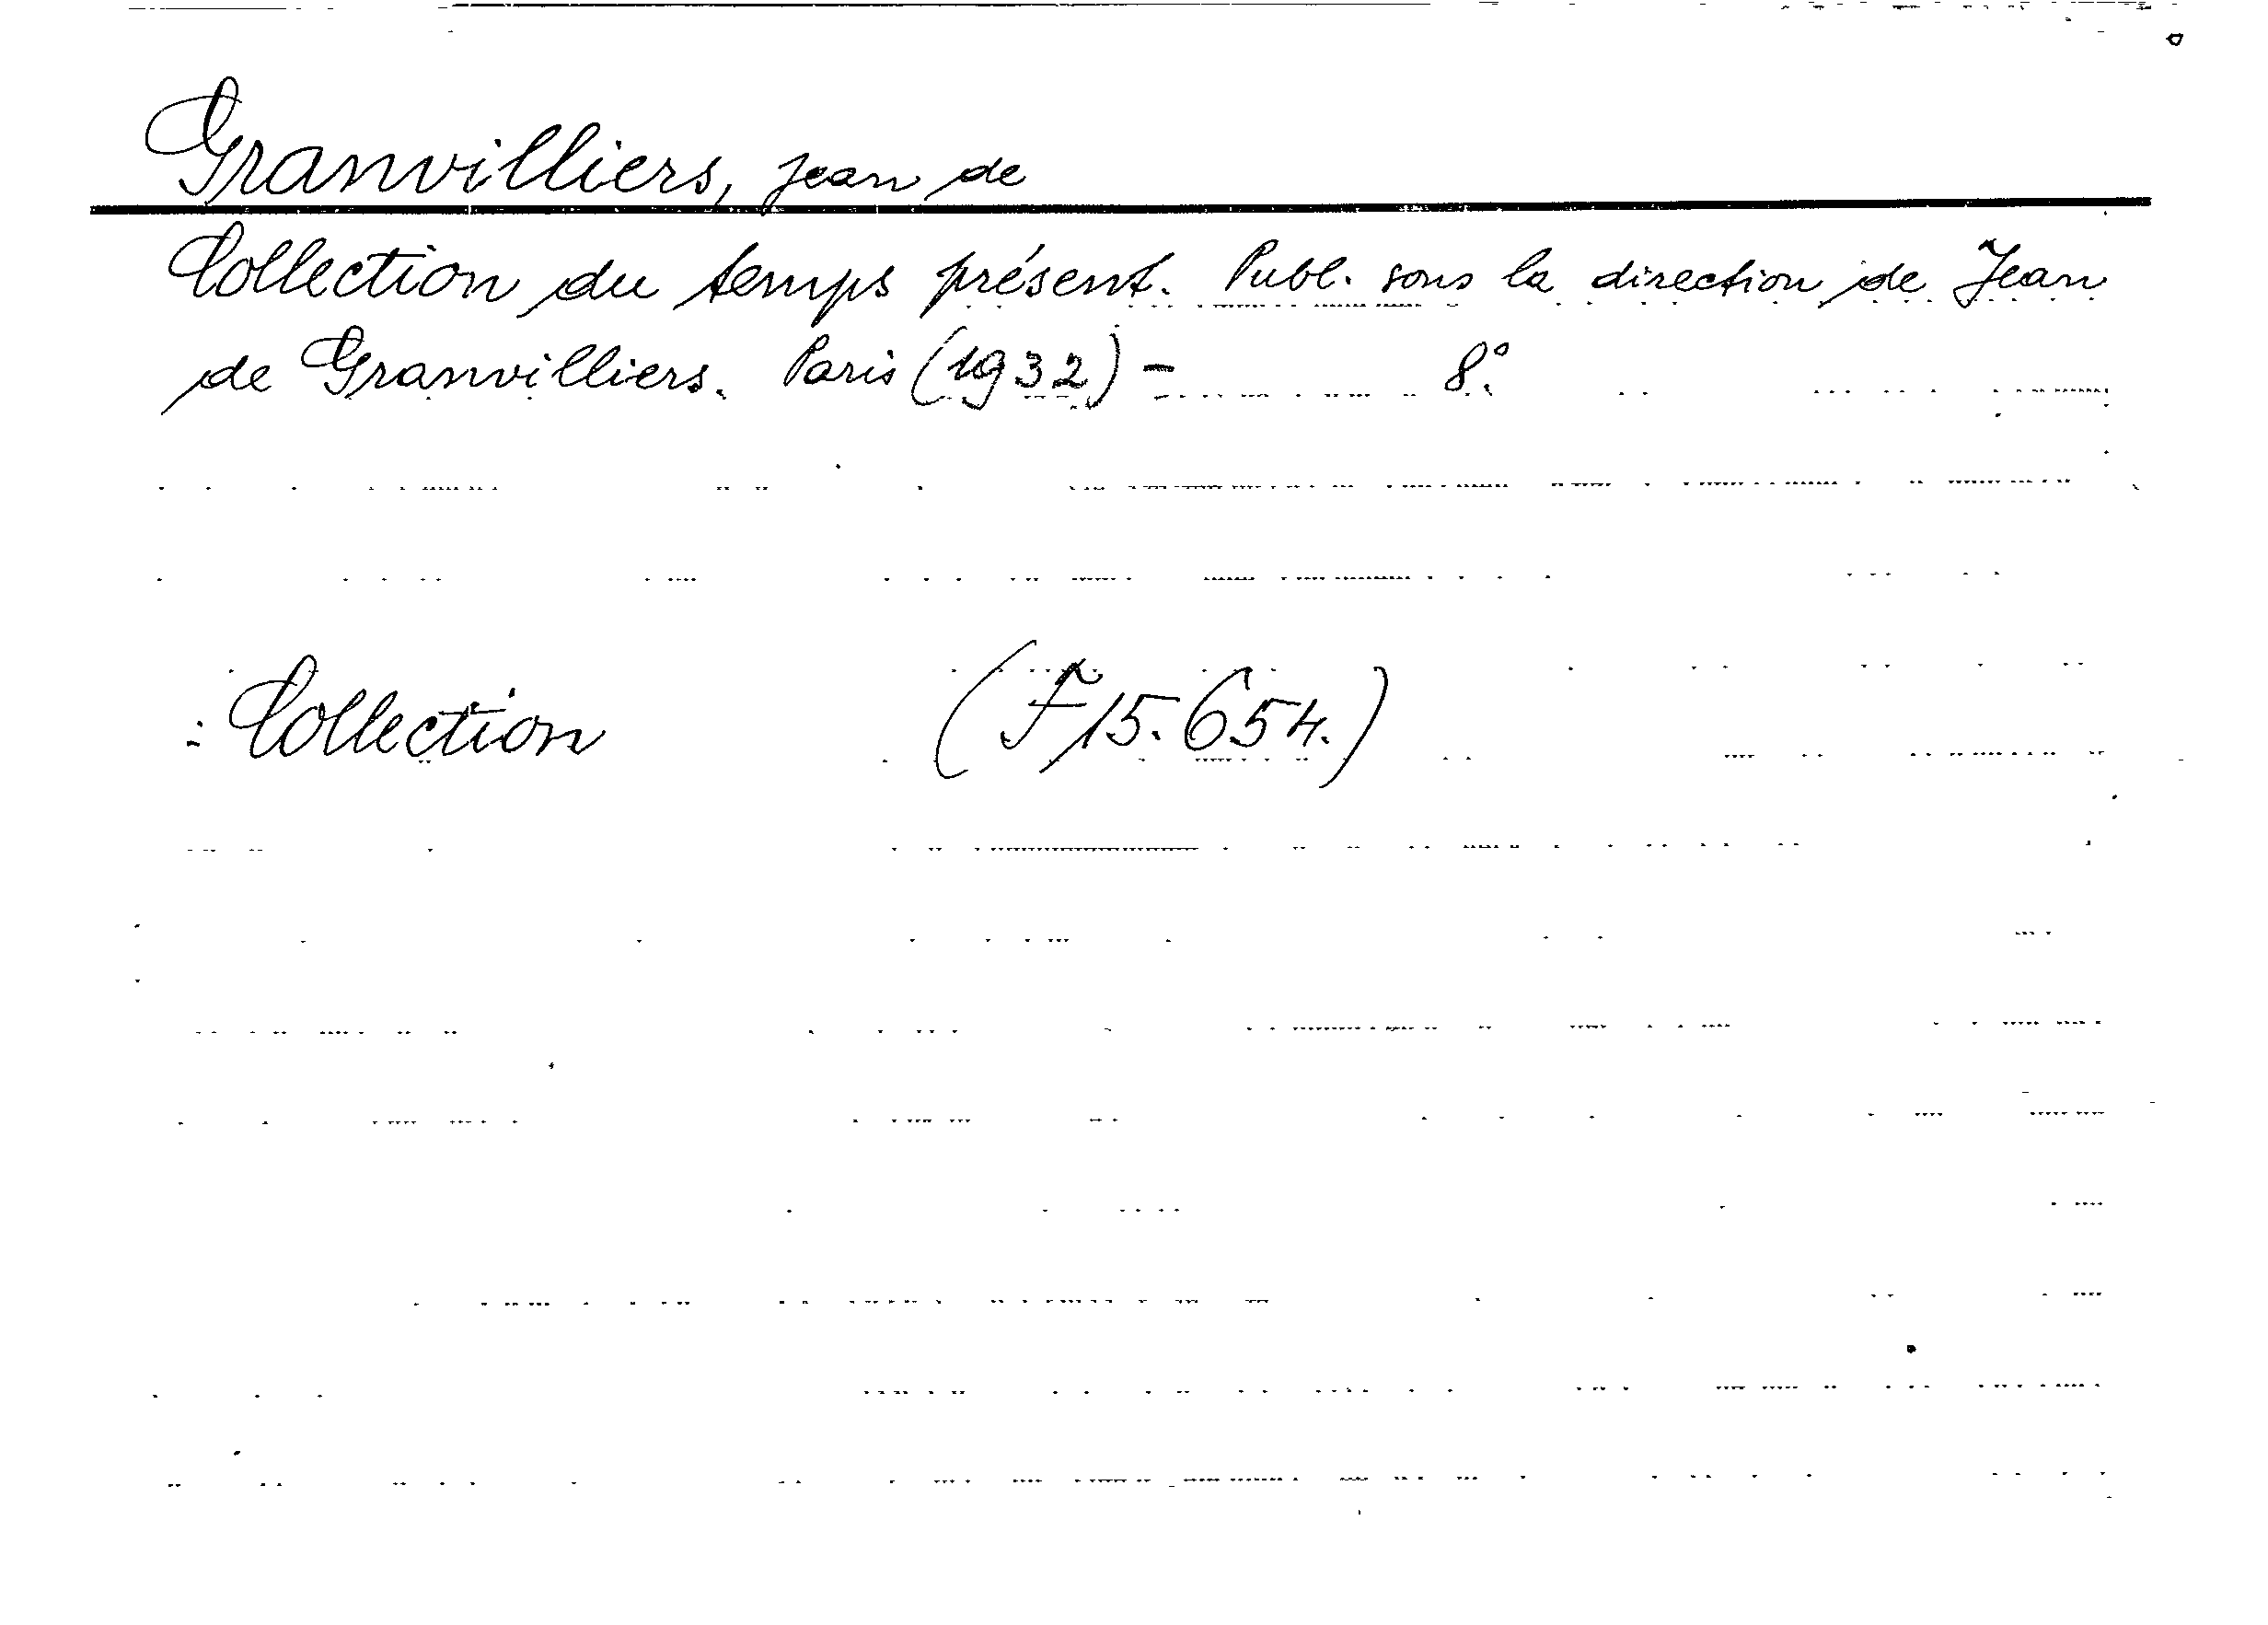 Granvilliers, Jean de
Collection du temps présent. Publ. sous la direction de Jean
de Granvilliers. Paris (1932) - 8°.
: Collection (F 15.654.)